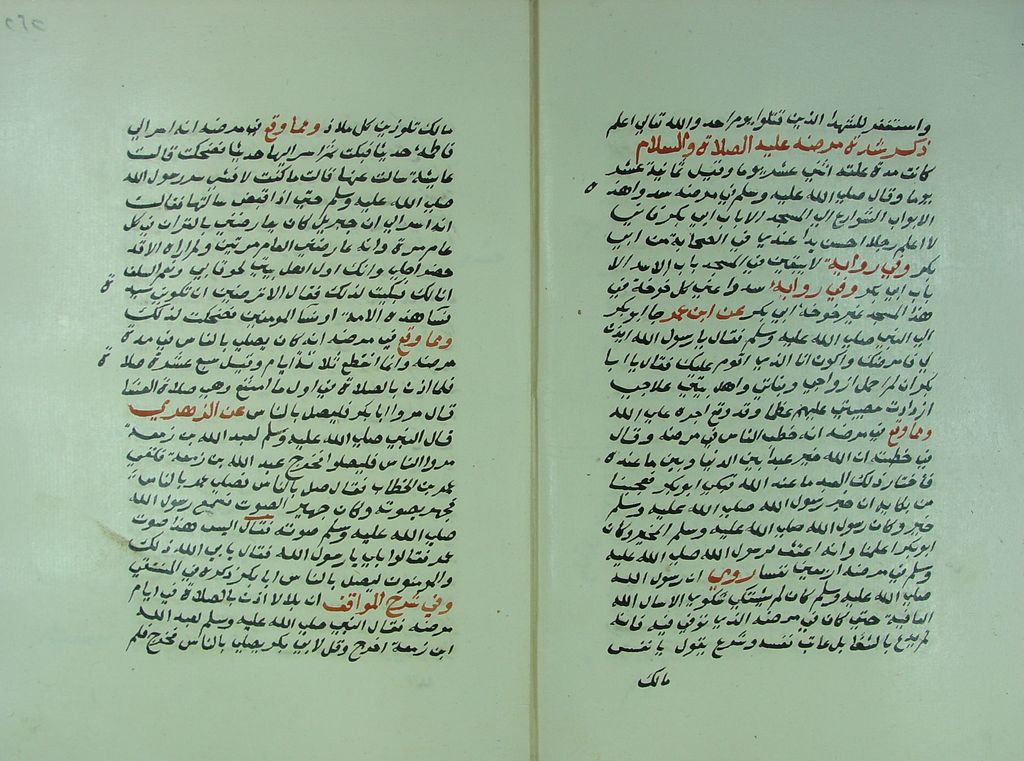 واستغفر للشهدا الذين قتلوا يوم احد والله تعالى اعلم
ذكر شدة مرضه عليه الصلاة والسلام
كانت مدة علته اثني عشر يوما وقيل ثمانية عشر
يوما وقال صلى الله عليه وسلم في مرضه سدوا هذه
الابواب الشوارع الى المسجد الا باب ابي بكر فاني
لا اعلم رجلا احسن يدا عندي في الصحابة من ابي
بكر وفي رواية لا يبقين في المسجد باب الا سد الا
باب ابي بكر وفي رواية سدوا عني كل خوخة في
هذا المسجد غير خوخة ابي بكر عن ابن عمر جا ابو بكر
الى النبي صلى الله عليه وسلم فقال يا رسول الله ائذن
لي فامرضك واكون انا الذي اقوم عليك فقال يا ابا
بكر ان لم احمل ازواجي وبناتي واهل بيتي علاجي
ازدادت مصيبتي عليهم عظما وقد وقع اجره على الله
ومما وقع في مرضه انه خطب الناس في مرضه وقال
في خطبته ان الله خير عبدا بين الدنيا وبين ما عنده
فاختار ذلك العبد ما عند الله فبكى ابو بكر فعجبنا
من بكايه ان خبر رسول الله صلى الله عليه وسلم
خير وكان رسول الله صلى الله عليه وسلم المخير وكان
ابو بكر اعلمنا وانه اعتق رسول الله صلى الله عليه
وسلم في مرضه اربعين نفسا روي ان رسول الله
صلى الله عليه وسلم كان لم يشتك شكوى الا سال الله
العافية حتى كان في مرضه الذي توفي فيه فانه
لم يدع بالشفا بل عاتب نفسه وشرع يقول يا نفس
مالك
مالك تلوذين كل ملاذ ومما وقع في مرضه انه اسر الى
فاطمة حديثا فبكت ثم اسر اليها حديثا فضحكت قالت
عايشة سالت عنها قالت ما كنت لافشي سر رسول الله
صلى الله عليه وسلم حتى اذا قبض سالتها فقالت
انه اسر الي ان جبريل كان يعارضني بالقران في كل
عام مرة وانه عارضني العام مرتين ولم اراه الا قد
حضر اجلي وانك اول اهل بيتي لحوقا بي ونعم السلف
انا لك فبكيت لذلك فقال الا ترضين ان تكوني سيدة
نسا هذه الامة او نسا المومنين فضحكت لذلك
ومما وقع في مرضه انه كان يصلي بالناس في مدة
مرضه وانما انقطع ثلاثة ايام وقيل سبع عشرة صلاة
فلما اذن بالصلاة في اول ما امتنع وهي صلاة العشا
قال مروا ابا بكر فليصل بالناس عن الزهري
قال النبي صلى الله عليه وسلم لعبد الله بن زمعة
مروا الناس فليصلوا فخرج عبد الله بن زمعة فلقي
عمر بن الخطاب فقال صل بالناس فصلى عمر بالناس
فجهر بصوته وكان جهير الصوت فسمع رسول الله
صلى الله عليه وسلم صوته فقال اليس هذا صوت
عمر فقالوا بلى يا رسول الله فقال يابى الله ذلك
والمومنون ليصل بالناس ابا بكر ذكره في المنتقى
وفي شرح المواقف ان بلالا اذن بالصلاة في ايام
مرضه فقال النبي صلى الله عليه وسلم لعبد الله
ابن زمعة اخرج وقل لابي بكر يصلي بالناس فخرج فلم